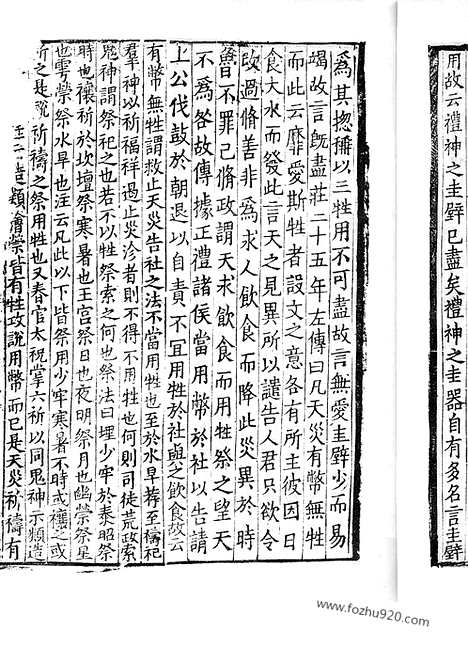 用故云禮神之圭璧已盡矣禮神之圭器自有多名言圭璧
爲其揔稱以三牲用不可盡故言無愛圭璧少而易
竭故言旣盡莊二十五年左傳曰凡天災有幣無牲
而此云靡愛斯牲者設文之意各有所主彼因日
食大水而發此言天之見異所以譴告人君只欲令
改過脩善非爲求人飲食而降此災異於時
魯不罪己脩政謂天求飲食而用牲祭之望天
不爲咎故傳據正禮諸侯當用幣於社以告請
上公伐鼓於朝退以自責不宜用牲於社與之飲食故云
有幣無牲謂救止天災告社之法不當用牲也至於水旱荐至禱祀
羣神以祈福祥遏止災沴者則不得不用牲也何則司徒荒政索
鬼神謂祭祀之也若不以牲祭索之何也祭法曰埋少牢於泰昭祭
時也禳祈於坎壇祭寒暑也王宮祭日也夜明祭月也幽禜祭星
也雩禜祭水旱也注云凡此以下皆祭用少牢寒暑不時或禳之或
祈之是說祈禱之祭用牲也又春官太祝掌六祈以同鬼神示類造
注云造類禬禜皆有牲攻說用幣而已是天災祈禱有
www.fozhu920.com